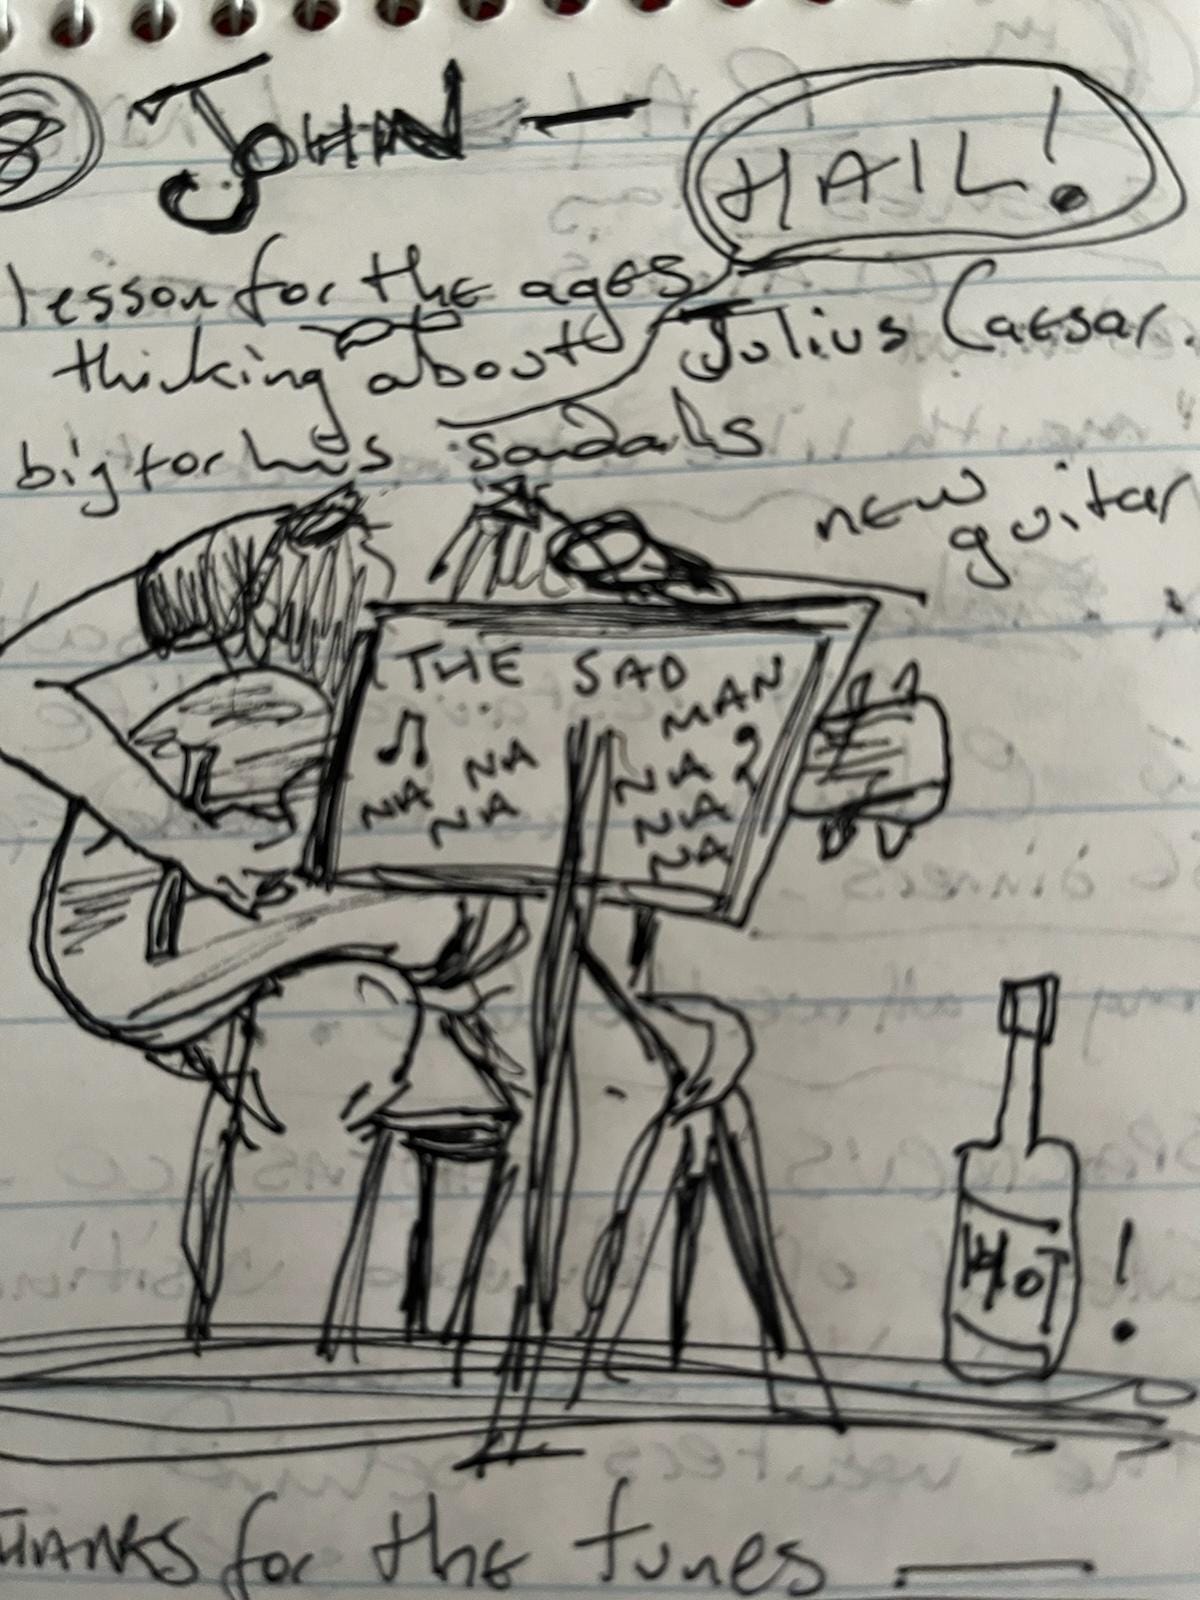 8 JOHN —
HAIL!
lesson for the ages
thinking about Julius Caesar.
big for his sandals
new
guitar
THE SAD
MAN
NA NA NA ?
NA NA NA
NA
HOT !
THANKS for the tunes —